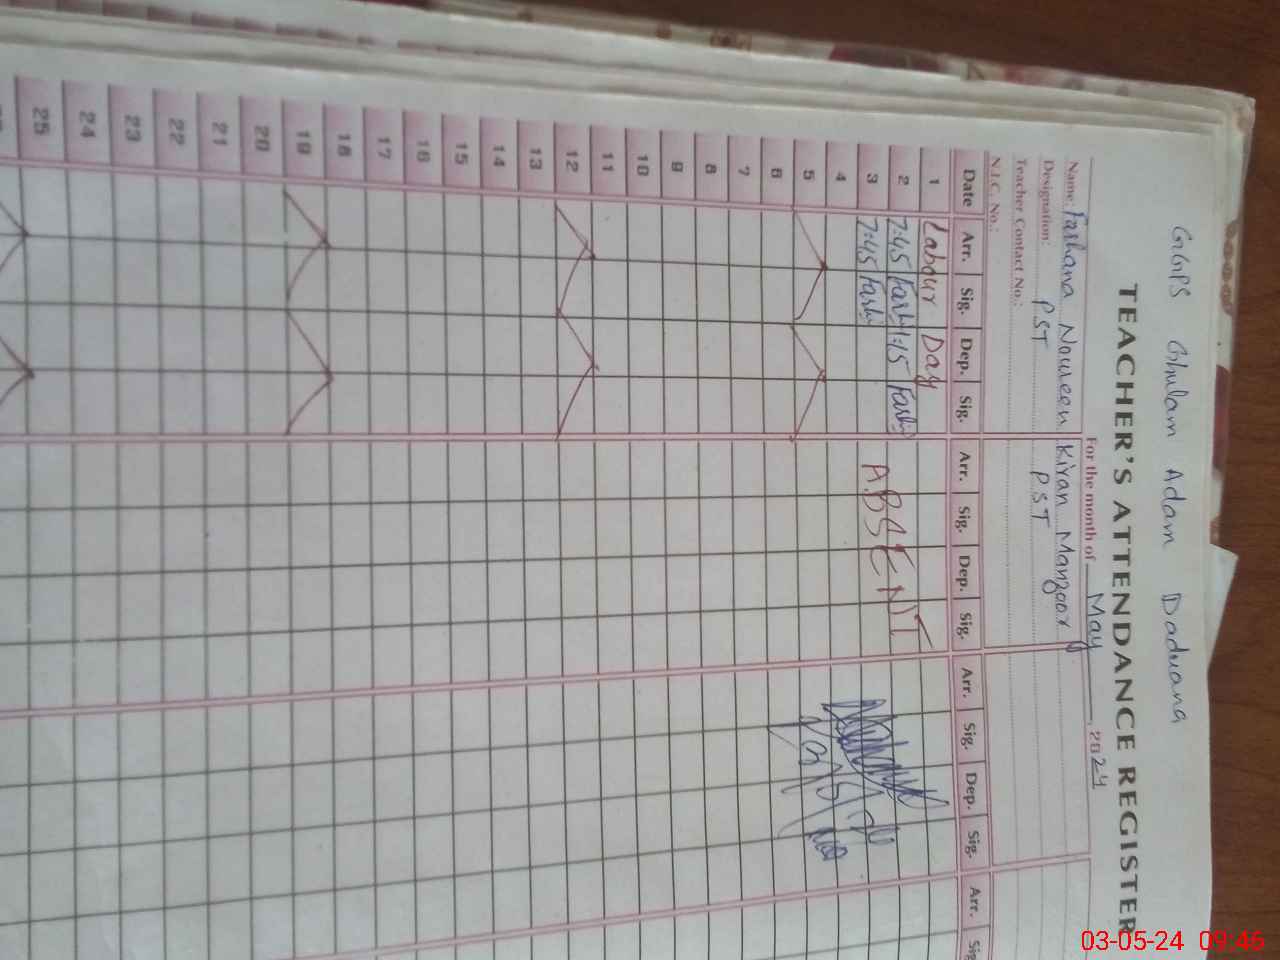 GGPS Ghulam Adam Daduana
TEACHER'S ATTENDANCE REGISTER
For the month of May, 2024
Name: Farhana Noureen Kiran Manzoor
Designation: PST PST
Teacher Contact No.:
N.I.C. No.:
Date Arr. Sig. Dep. Sig. Arr. Sig. Dep. Sig. Arr. Sig. Dep. Sig. Arr. Sig.
1 Labour Day
2 7:45 Farh 1:15 Farh
3 7:45 Farh
ABSENT
4
5
6
7
8
9
10
11
12
13
14
15
16
17
18
19
20
21
22
23
24
25
03-05-24 09:46